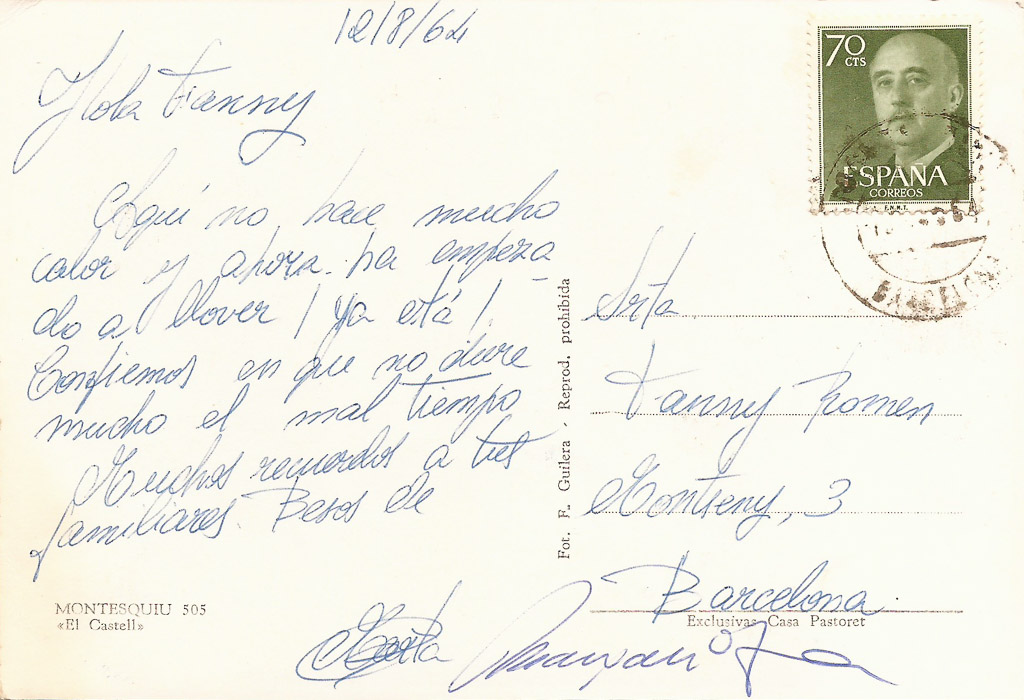 12/8/64
Hola Fanny
Aquí no hace mucho
calor y ahora ha empeza
do a llover ¡Ya está!
Confiemos en que no dure
mucho el mal tiempo
Muchos recuerdos a tus
familiares. Besos de
Marta
MONTESQUIU 505
«El Castell»
Fot. F. Guilera - Reprod. prohibida
70
CTS
ESPAÑA
CORREOS
F.N.M.T.
BARCELONA
Srta
Fanny Romeu
Montseny, 3
Barcelona
Exclusivas Casa Pastoret